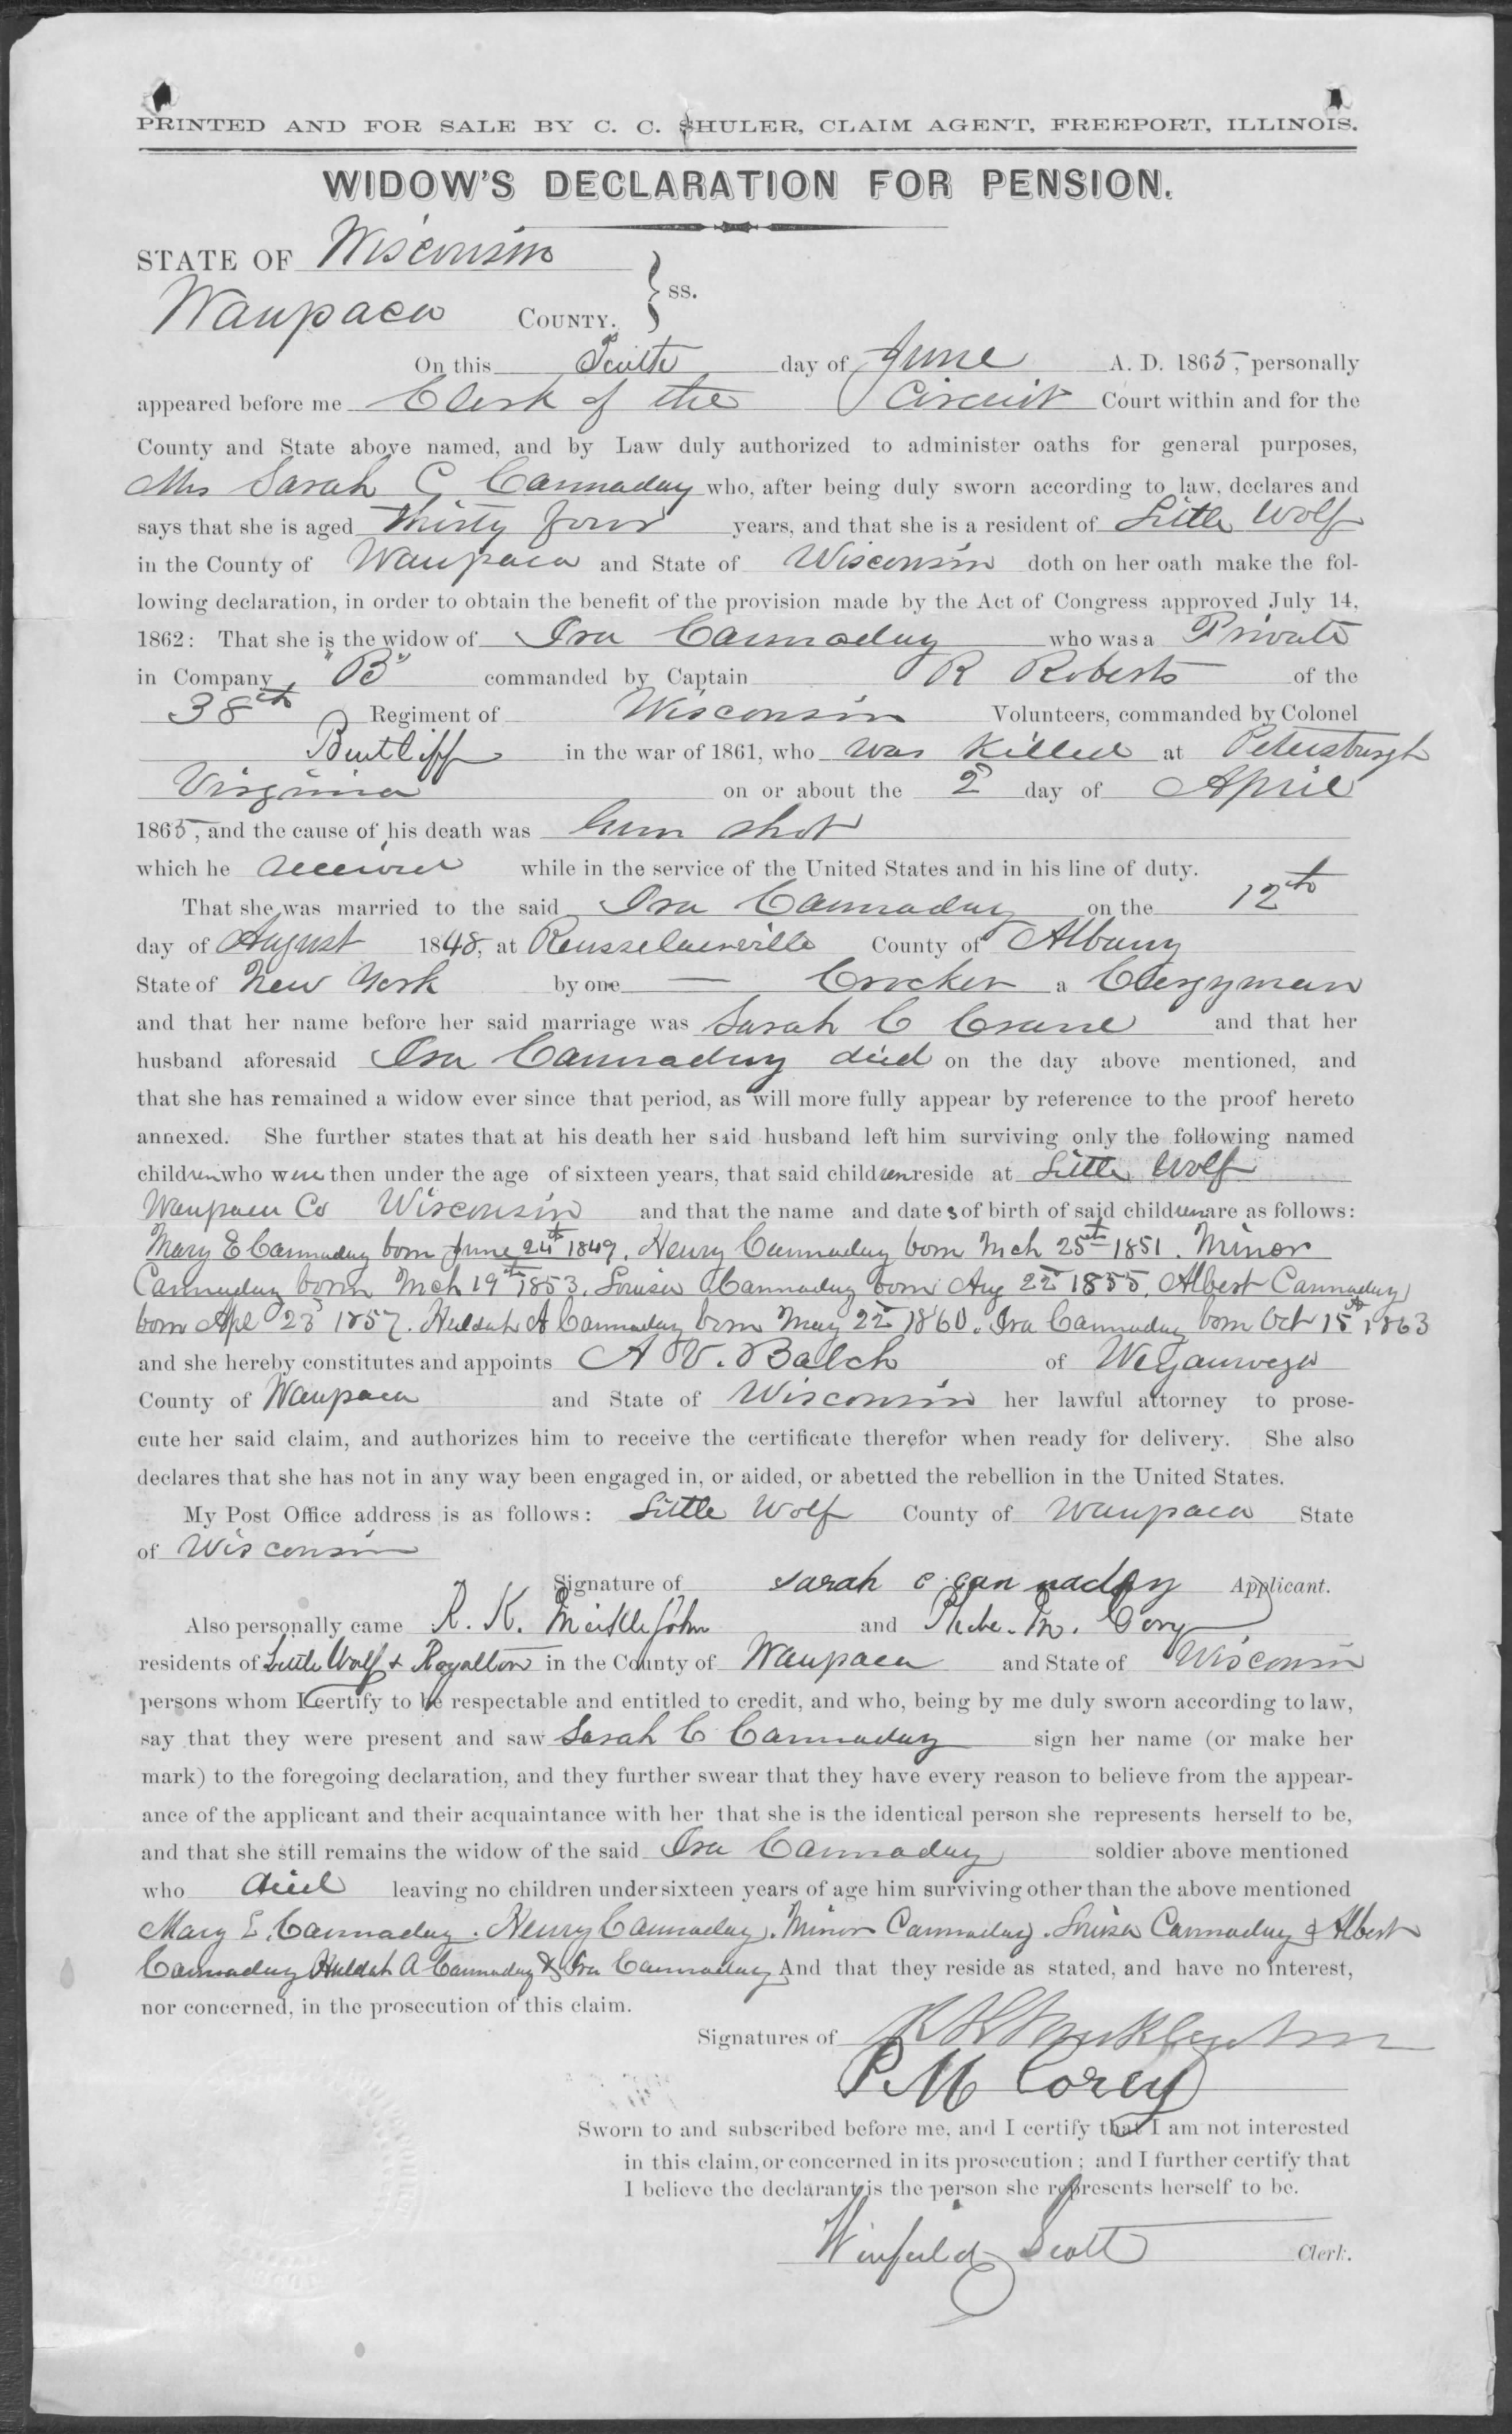 PRINTED AND FOR SALE BY C. C. SHULER, CLAIM AGENT, FREEPORT, ILLINOIS.
WIDOW'S DECLARATION FOR PENSION.
STATE OF Wisconsin
Waupaca COUNTY. } ss.
On this Tenth day of June A. D. 1865, personally
appeared before me Clerk of the Circuit Court within and for the
County and State above named, and by Law duly authorized to administer oaths for general purposes,
Mrs Sarah C Cannaday who, after being duly sworn according to law, declares and
says that she is aged Thirty four years, and that she is a resident of Little Wolf
in the County of Waupaca and State of Wisconsin doth on her oath make the fol-
lowing declaration, in order to obtain the benefit of the provision made by the Act of Congress approved July 14,
1862: That she is the widow of Ira Cannaday who was a Private
in Company "B" commanded by Captain R Roberts of the
38th Regiment of Wisconsin Volunteers, commanded by Colonel
Bintliff in the war of 1861, who was killed at Petersburgh
Virginia on or about the 2d day of April
1865, and the cause of his death was Gun shot
which he received while in the service of the United States and in his line of duty.
That she was married to the said Ira Cannaday on the 12th
day of August 1848, at Rensselaerville County of Albany
State of New York by one — Crocker a Clergyman
and that her name before her said marriage was Sarah C Crane and that her
husband aforesaid Ira Cannaday died on the day above mentioned, and
that she has remained a widow ever since that period, as will more fully appear by reference to the proof hereto
annexed. She further states that at his death her said husband left him surviving only the following named
children who were then under the age of sixteen years, that said children reside at Little Wolf
Waupaca Co Wisconsin and that the name and dates of birth of said children are as follows:
Mary E Cannaday born June 24th 1849. Henry Cannaday born Mch 25th 1851. Minor
Cannaday born Mch 19th 1853. Louisa Cannaday born Aug 22d 1855. Albert Cannaday
born Apl 23d 1857. Huldah A Cannaday born May 22d 1860. Ira Cannaday born Oct 15th 1863
and she hereby constitutes and appoints A V. Balch of Weyauwega
County of Waupaca and State of Wisconsin her lawful attorney to prose-
cute her said claim, and authorizes him to receive the certificate therefor when ready for delivery. She also
declares that she has not in any way been engaged in, or aided, or abetted the rebellion in the United States.
My Post Office address is as follows: Little Wolf County of Waupaca State
of Wisconsin
Signature of sarah c cannaday Applicant.
Also personally came R. K. Meiklejohn and Phebe. M. Cory
residents of Little Wolf & Royalton in the County of Waupaca and State of Wisconsin
persons whom I certify to be respectable and entitled to credit, and who, being by me duly sworn according to law,
say that they were present and saw Sarah C Cannaday sign her name (or make her
mark) to the foregoing declaration, and they further swear that they have every reason to believe from the appear-
ance of the applicant and their acquaintance with her that she is the identical person she represents herself to be,
and that she still remains the widow of the said Ira Cannaday soldier above mentioned
who died leaving no children under sixteen years of age him surviving other than the above mentioned
Mary E. Cannaday. Henry Cannaday. Minor Cannaday. Louisa Cannaday & Albert
Cannaday Huldah A Cannaday & Ira Cannaday And that they reside as stated, and have no interest,
nor concerned, in the prosecution of this claim.
Signatures of R K Meiklejohn
P. M Corey
Sworn to and subscribed before me, and I certify that I am not interested
in this claim, or concerned in its prosecution; and I further certify that
I believe the declarant is the person she represents herself to be.
Winfield Scott Clerk.